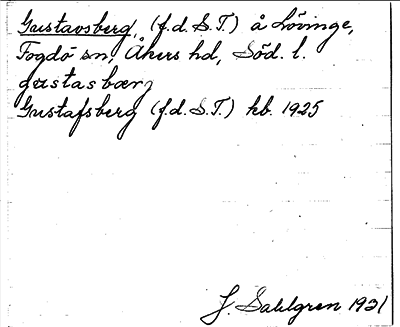 Gustavsberg, (f.d. S.T.) å Lövinge,
Fogdö sn, Åkers hd, Söd. l.
gustasbærj
Gustafsberg (f.d. S.T.) kb. 1925
J. Sahlgren 1921